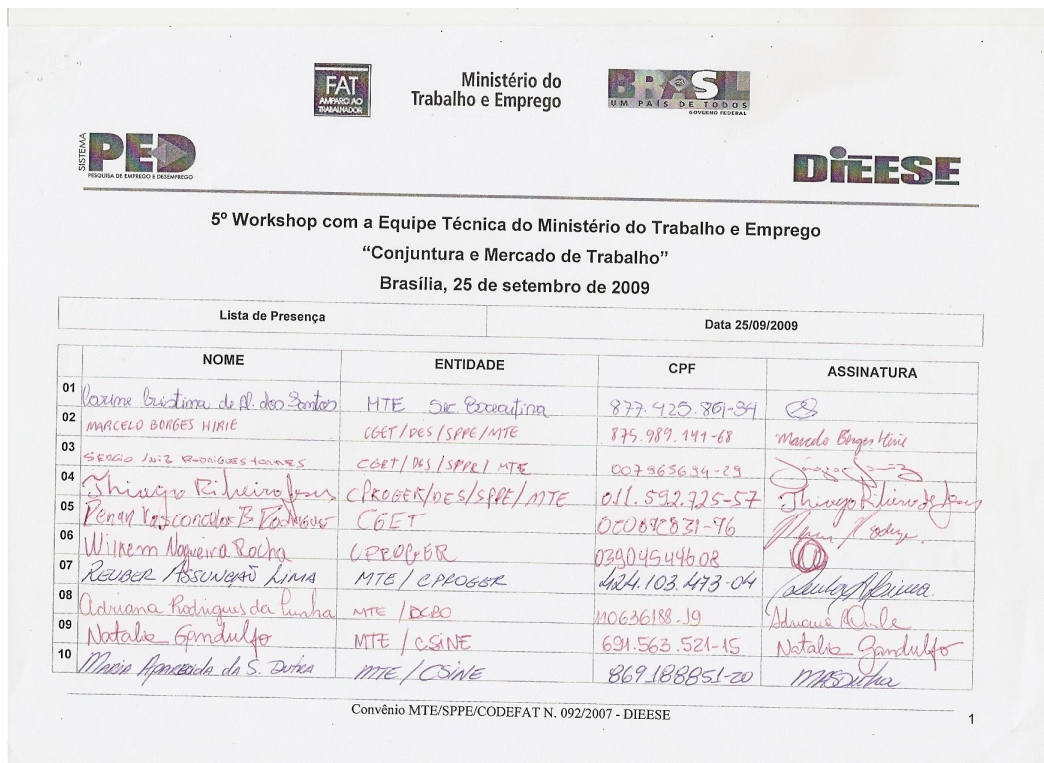 FAT
AMPARO AO
TRABALHADOR
Ministério do
Trabalho e Emprego
BRASIL
UM PAÍS DE TODOS
GOVERNO FEDERAL
SISTEMA
PED
PESQUISA DE EMPREGO E DESEMPREGO
DIEESE
5º Workshop com a Equipe Técnica do Ministério do Trabalho e Emprego
“Conjuntura e Mercado de Trabalho”
Brasília, 25 de setembro de 2009
Lista de Presença Data 25/09/2009
NOME ENTIDADE CPF ASSINATURA
01 Cristina de Al. dos Santos MTE Sec. Executiva 877.425.861-34
02 MARCELO BORGES HIRIE CGET/DES/SPPE/MTE 875.989.141-68 Marcelo Borges Hirie
03 SERGIO LUIZ RODRIGUES TORRES CGET/DES/SPPE/MTE
04 Thiago Ribeiro Jesus CPROGER/DES/SPPE/MTE 011.592.725-57 Thiago Ribeiro de Jesus
05 Renan Vasconcelos B. Rodrigues CGET
06 Wilkem Nogueira Rocha CPROGER 03904544608
07 REUBER ASSUNÇÃO LIMA MTE/CPROGER 424.103.473-04
08 Adriana Rodrigues da Cunha MTE/ 110636188-19
09 Natalia Gandulfo MTE/CSINE 691.563.521-15 Natalia Gandulfo
10 MARIA APARECIDA DA S. DUTRA MTE/CSINE 869188851-20 MASDutra
Convênio MTE/SPPE/CODEFAT N. 092/2007 - DIEESE
1